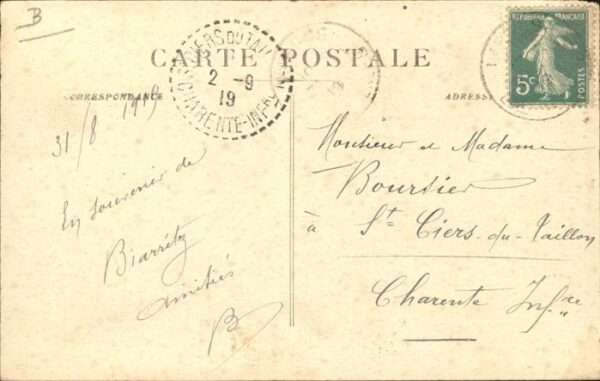 B
CARTE POSTALE
CORRESPONDANCE
ADRESSE
CIERS DU TAILLON
2 - 9
19
CHARENTE-INFRE
19
REPUBLIQUE FRANÇAISE
5c
POSTES
31/8 1919
En souvenir de
Biarritz
Amitiés
B
Monsieur et Madame
Boursier
à St Ciers-du-Taillon
Charente Infre